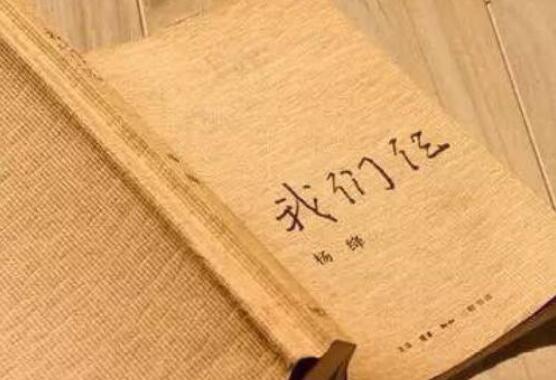 我们仨
杨绛